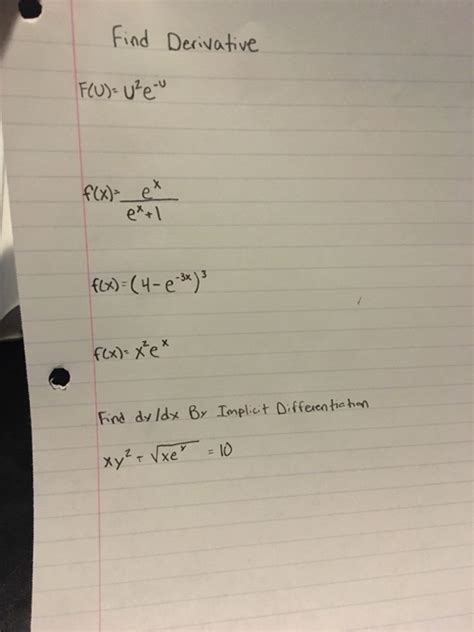 Find Derivative
F(U)= U²e^-U
f(x)= e^x / e^x+1
f(x)=(4-e^-3x)³
f(x)= x²e^x
Find dy/dx By Implicit Differentiation
xy² = √xe^y = 10